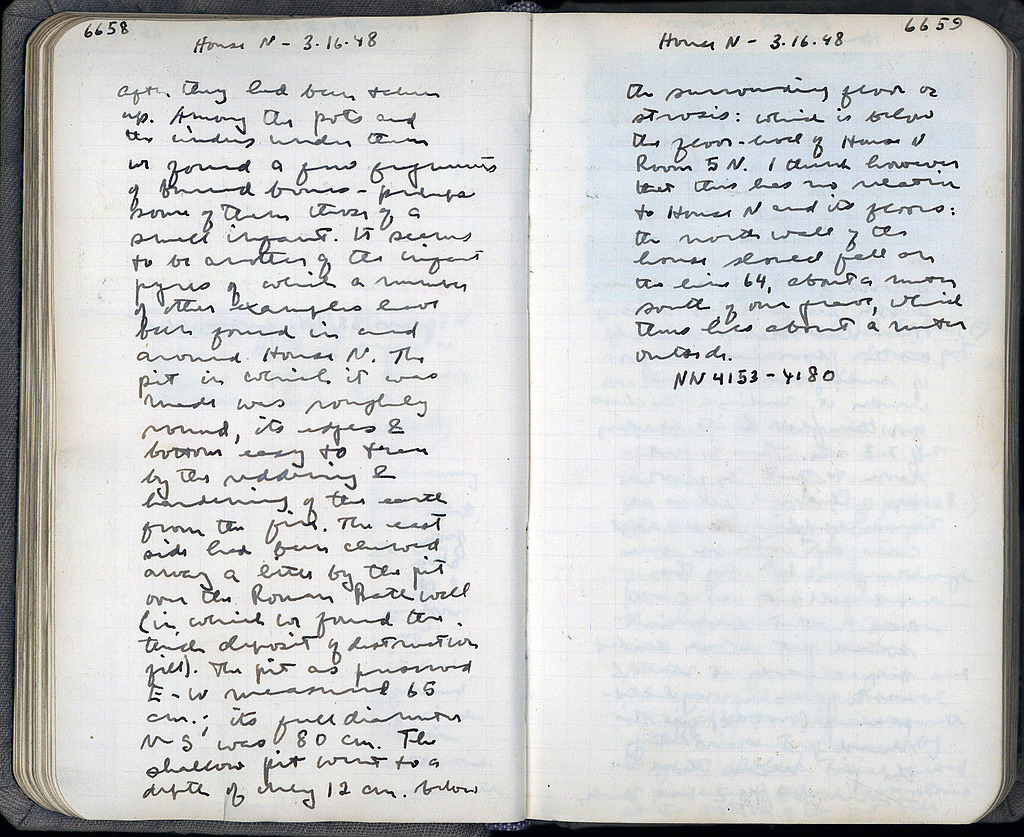 6658
House N - 3.16.48
after they had been taken
up. Among the pots and
the cinders under them
we found a few fragments
of burned bones - perhaps
some of them those of a
small infant. It seems
to be another of the infant
pyres of which a number
of other examples have
been found in and
around House N. The
pit in which it was
made was roughly
round, its edges &
bottom easy to trace
by the reddening &
hardening of the earth
from the fire. The east
side had been chewed
away a little by the pit
over the Roman Bath wall
(in which we found the
thick deposit of destruction
fill). The pit as preserved
E-W measured 65
cm.; its full diameter
N-S, was 80 cm. The
shallow pit went to a
depth of only 12 cm. below
6659
House N - 3.16.48
the surrounding floor or
strosis: which is below
the floor-level of House N
Room 5 N. I think however
that this has no relation
to House N and its floors:
the north wall of the
house should fall on
the line 64, about a meter
south of our grave, which
thus lies about a meter
outside.
NN 4153-4180